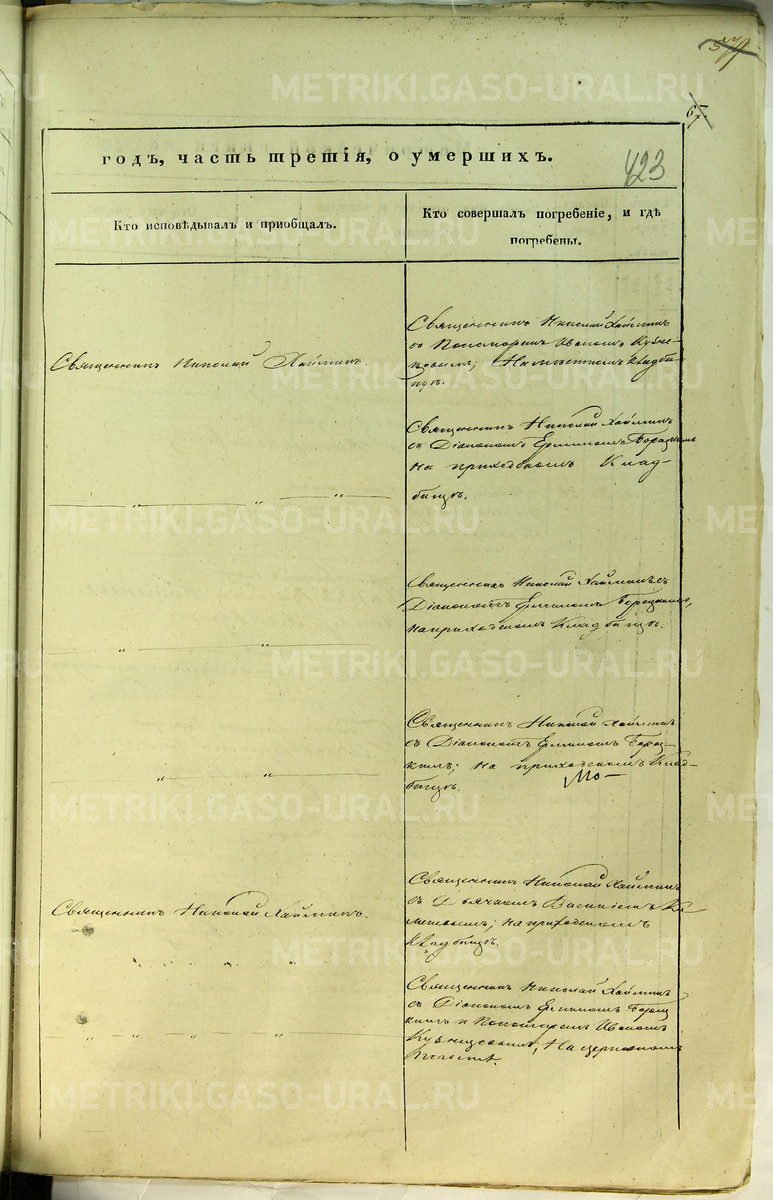 67.
423
годъ, часть третія, о умершихъ.
Кто исповѣдывалъ и приобщалъ.
Кто совершалъ погребеніе, и гдѣ
погребены.
Священникъ Николай Хайминъ.
Священникъ Николай Хайминъ
съ Пономаремъ Иваномъ Кузне-
цовымъ; На мѣстномъ кладби-
щѣ.
Священникъ Николай Хайминъ
съ Діакономъ Ермиломъ
на приходскомъ Клад-
бищѣ.
Священникъ Николай Хайминъ съ
Діакономъ Ермиломъ Борецкимъ,
на приходскомъ Кладбищѣ.
Священникъ Николай Хайминъ
съ Діакономъ Ермиломъ Борец-
кимъ; на приходскомъ Клад-
бищѣ.
Священникъ Николай Хайминъ.
Священникъ Николай Хайминъ
съ Дьячкомъ Василіемъ
на приходскомъ
кладбищѣ.
Священникъ Николай Хайминъ
съ Діакономъ Ермиломъ Борец
кимъ и Пономаремъ Иваномъ
Кузнецовымъ; На церковномъ
METRIKI.GASO-URAL.RU